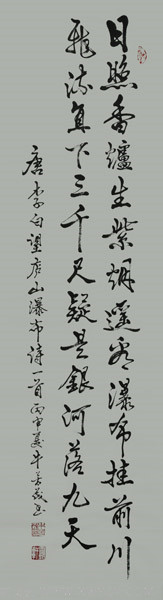 日照香爐生紫烟遥看瀑布挂前川
飛流直下三千尺疑是銀河落九天
唐李白望庐山瀑布诗一首丙申